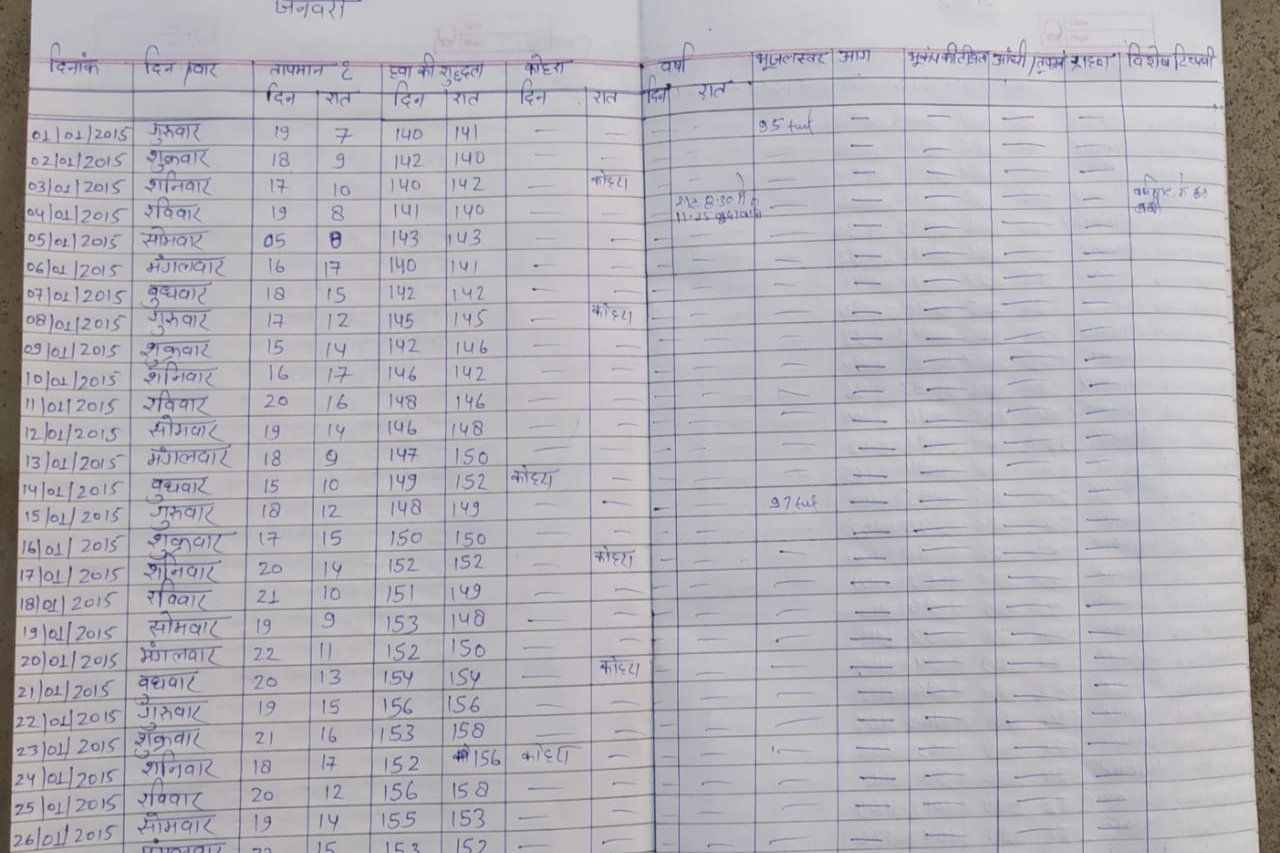 जनवरी
दिनांक दिन/वार तापमान ८ हवा की शुद्धता कोहरा वर्षा भूजलस्तर आग आंधी/तूफान विशेष टिप्पणी
दिन रात दिन रात दिन रात दिन रात
01/01/2015 गुरुवार 19 7 140 141 — — — — 95 — — — —
02/01/2015 शुक्रवार 18 9 142 140 — — — — — — — — —
03/01/2015 शनिवार 17 10 140 142 — कोहरा — — — — — — —
04/01/2015 रविवार 19 8 141 140 — — — रात 8:30 से 11-25 — — — — —
05/01/2015 सोमवार 05 8 143 143 — — — — — — — — —
06/01/2015 मंगलवार 16 17 140 141 — — — — — — — — —
07/01/2015 बुधवार 18 15 142 142 — — — — — — — — —
08/01/2015 गुरुवार 17 12 145 145 — कोहरा — — — — — — —
09/01/2015 शुक्रवार 15 14 142 146 — — — — — — — — —
10/01/2015 शनिवार 16 17 146 142 — — — — — — — — —
11/01/2015 रविवार 20 16 148 146 — — — — — — — — —
12/01/2015 सोमवार 19 14 146 148 — — — — — — — — —
13/01/2015 मंगलवार 18 9 147 150 — — — — — — — — —
14/01/2015 बुधवार 15 10 149 152 कोहरा — — — — — — — —
15/01/2015 गुरुवार 18 12 148 149 — — — — 97 — — — —
16/01/2015 शुक्रवार 17 15 150 150 — — — — — — — — —
17/01/2015 शनिवार 20 14 152 152 — कोहरा — — — — — — —
18/01/2015 रविवार 21 10 151 149 — — — — — — — — —
19/01/2015 सोमवार 19 9 153 148 — — — — — — — — —
20/01/2015 मंगलवार 22 11 152 150 — — — — — — — — —
21/01/2015 बुधवार 20 13 154 154 — कोहरा — — — — — — —
22/01/2015 गुरुवार 19 15 156 156 — — — — — — — — —
23/01/2015 शुक्रवार 21 16 153 158 — — — — — — — — —
24/01/2015 शनिवार 18 17 152 156 कोहरा — — — — — — — —
25/01/2015 रविवार 20 12 156 158 — — — — — — — — —
26/01/2015 सोमवार 19 14 155 153 — — — — — — — — —
मंगलवार 22 15 153 152 — — — — — — — — —